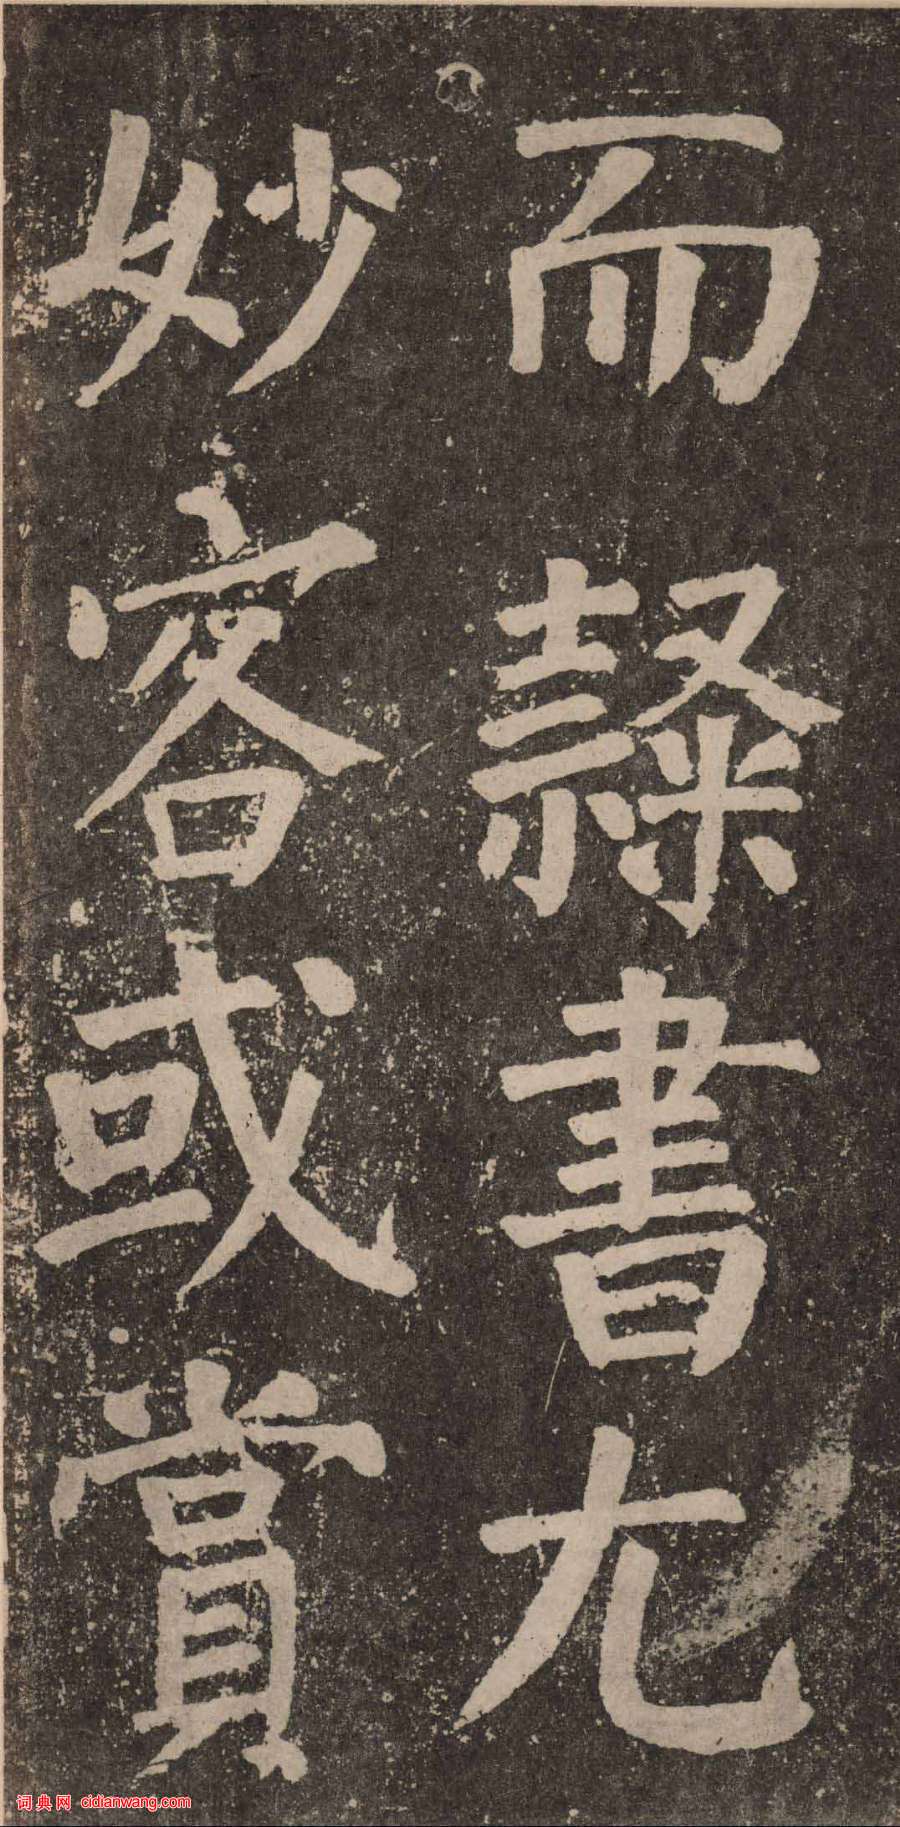 而隸書尤
妙客或賞
词典网 cidianwang.com